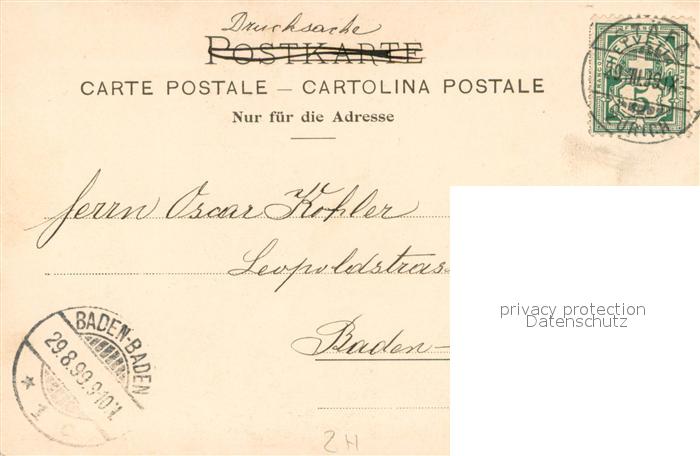 Drucksache
POSTKARTE
CARTE POSTALE — CARTOLINA POSTALE
Nur für die Adresse
HELVETIA
5
ZÜRICH
Herrn Oscar Kohler
Leopoldstras
Baden-
privacy protection
Datenschutz
BADEN-BADEN
29.8.99.9-10V.
* 1 c
2H